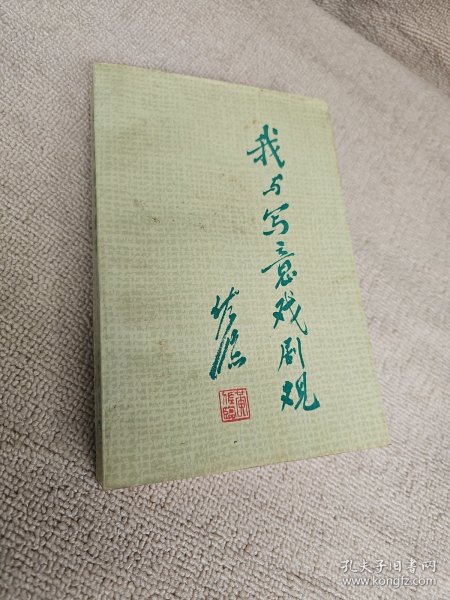 我与写意戏剧观
佐临
黄佐临
孔夫子旧书网
www.kongfz.com